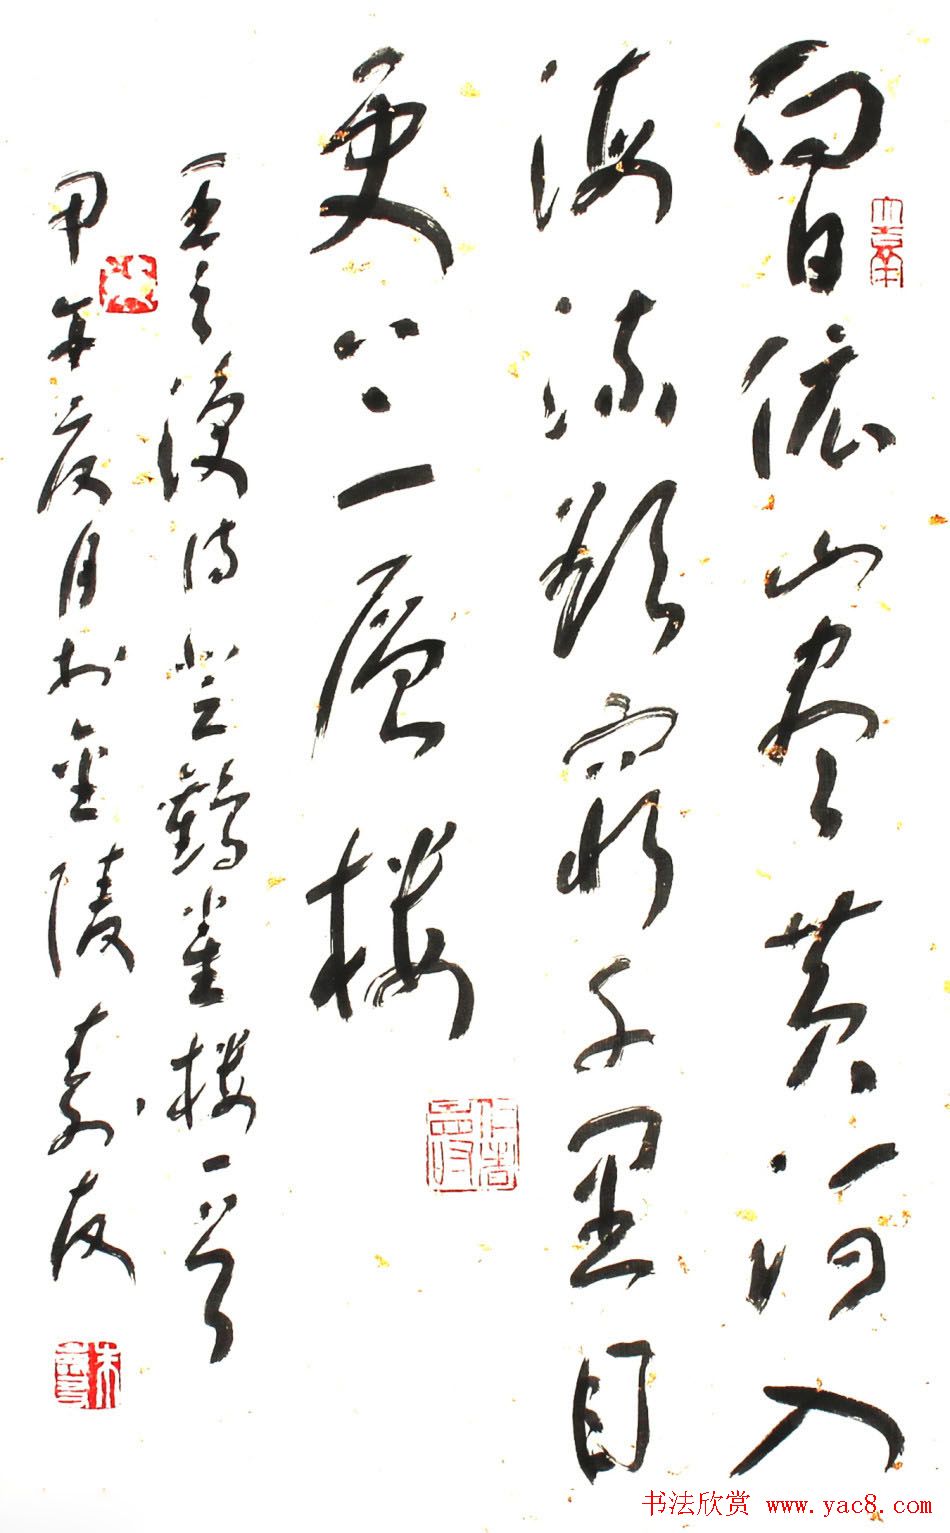 白日依山尽黄河入
海流欲穷千里目
更上一层楼
王之涣诗登鹳雀楼一首
甲午夏月於金陵寿友
书法欣赏 www.yac8.com